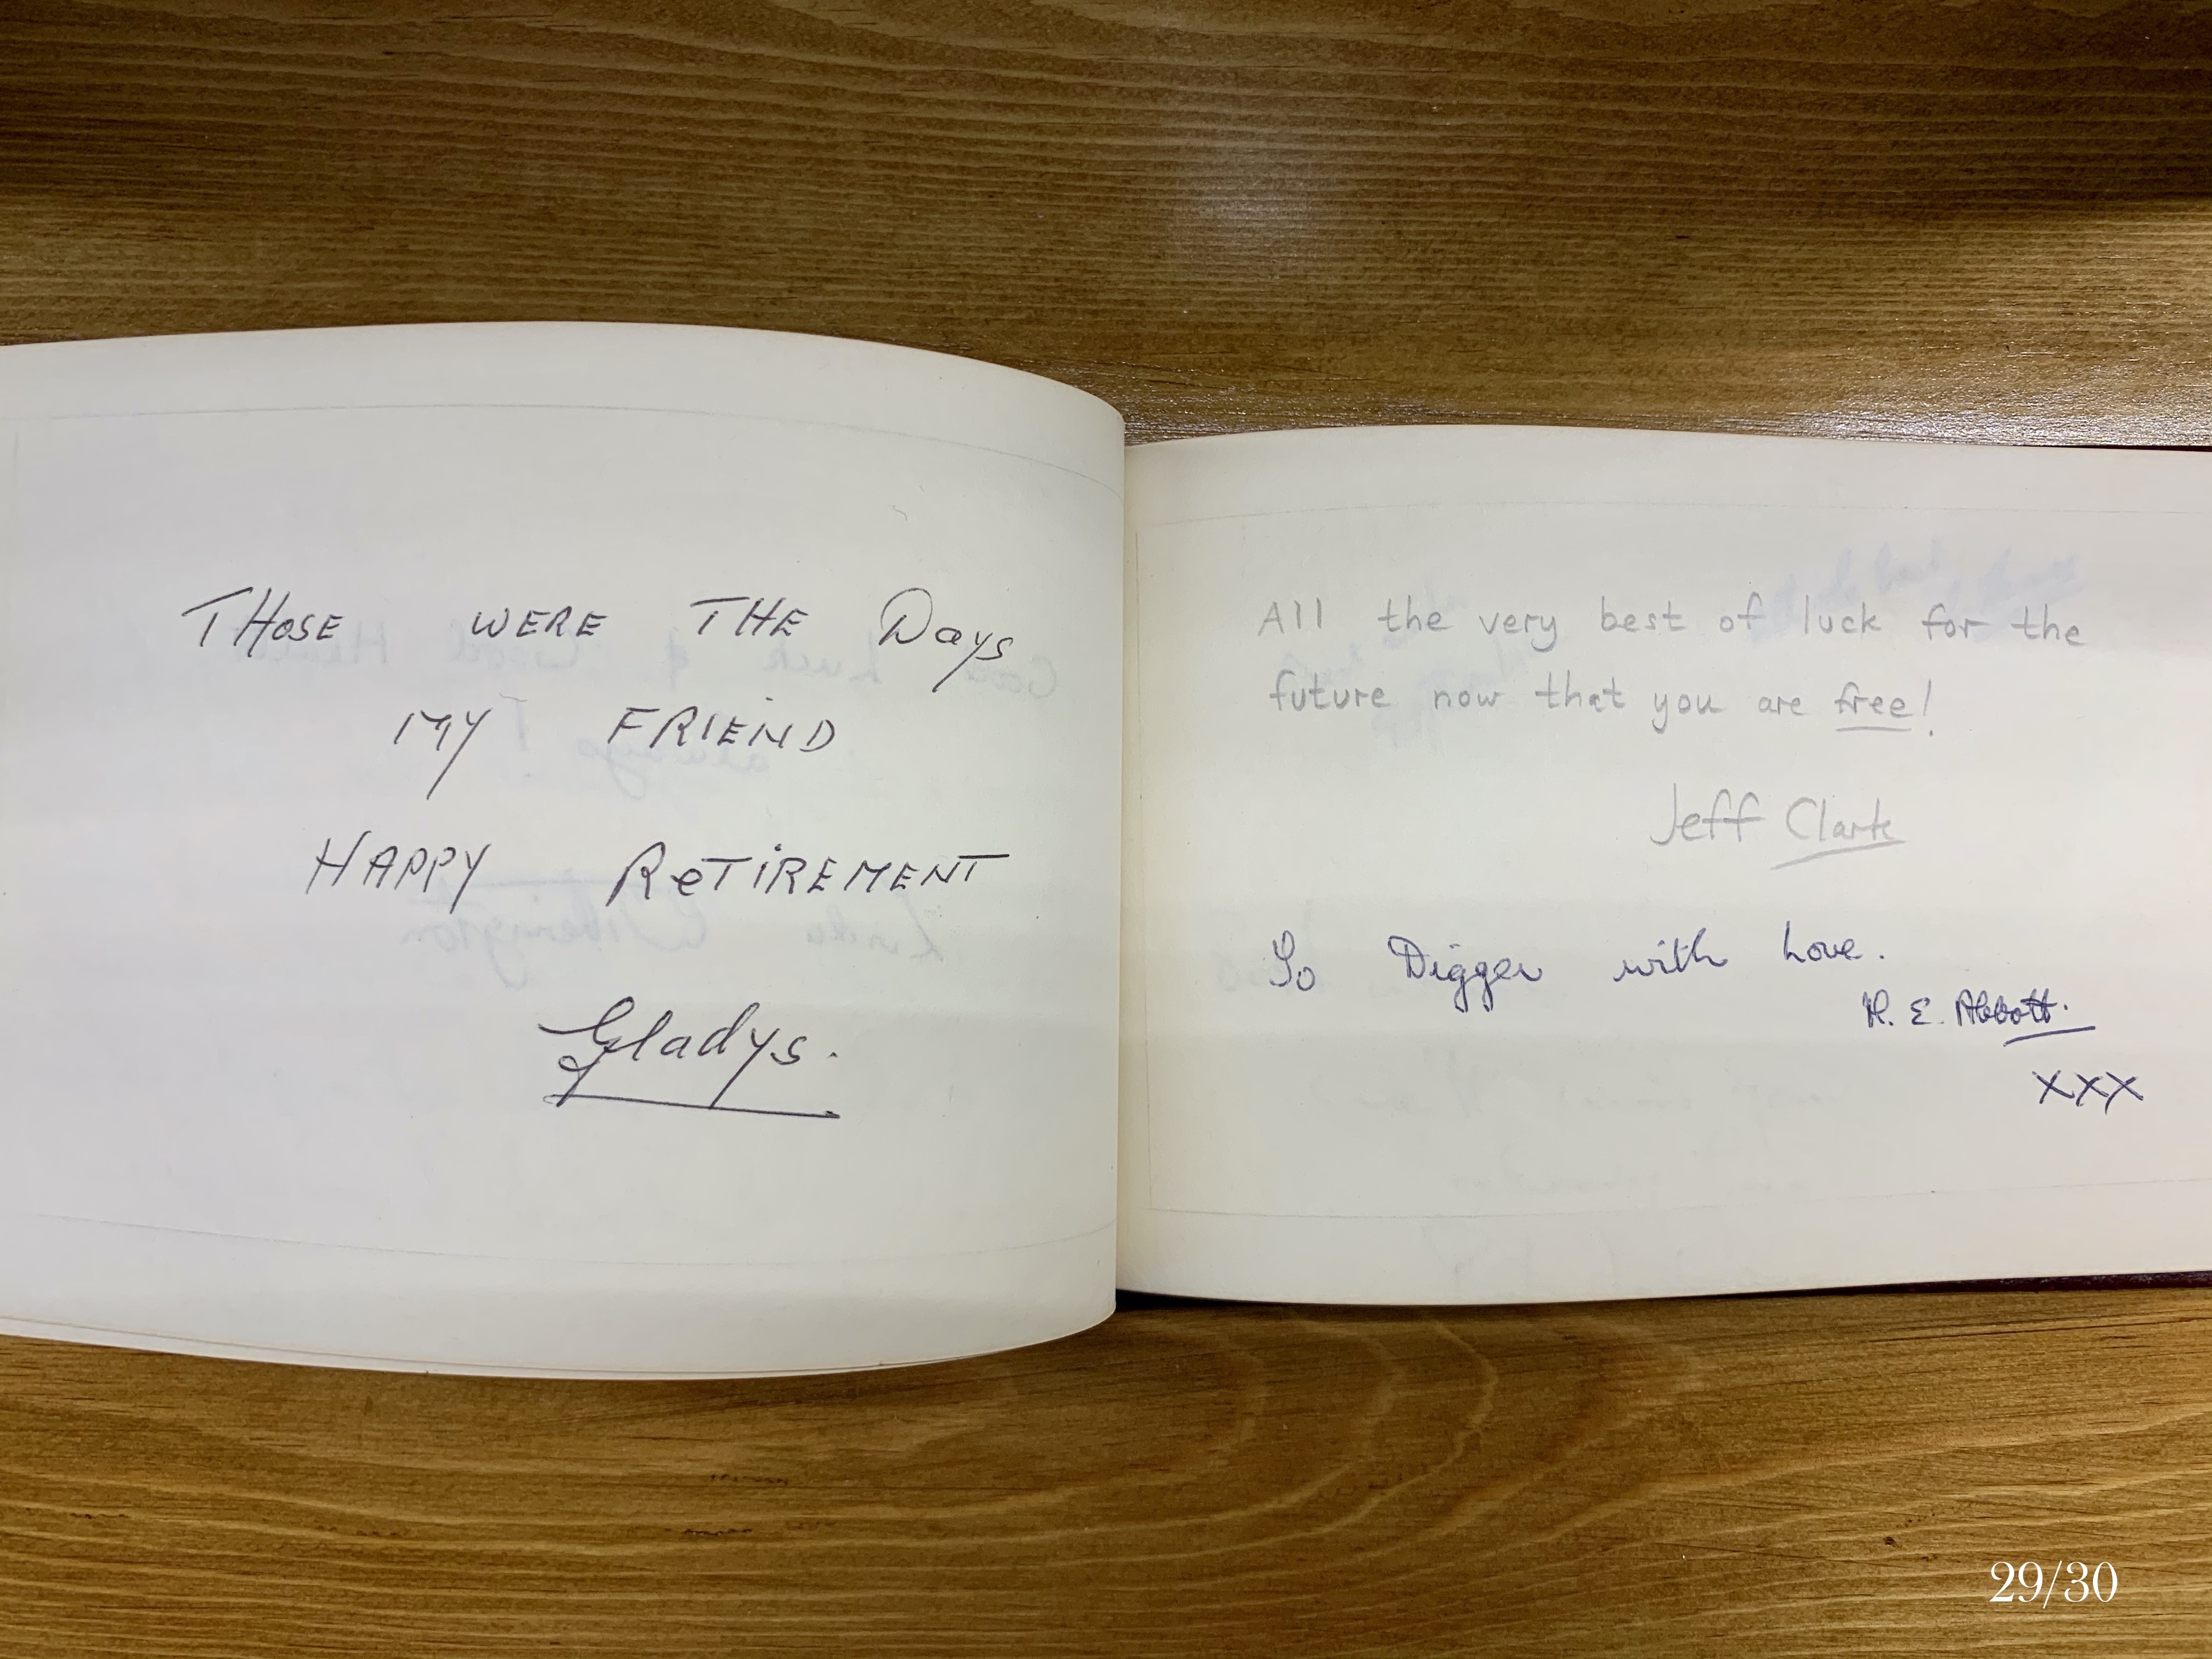 THOSE WERE THE Days
MY FRIEND
HAPPY ReTIREMENT
Gladys.
All the very best of luck for the
future now that you are free!
Jeff Clark
To Digger with Love.
E. Abbott.
XXX
29/30